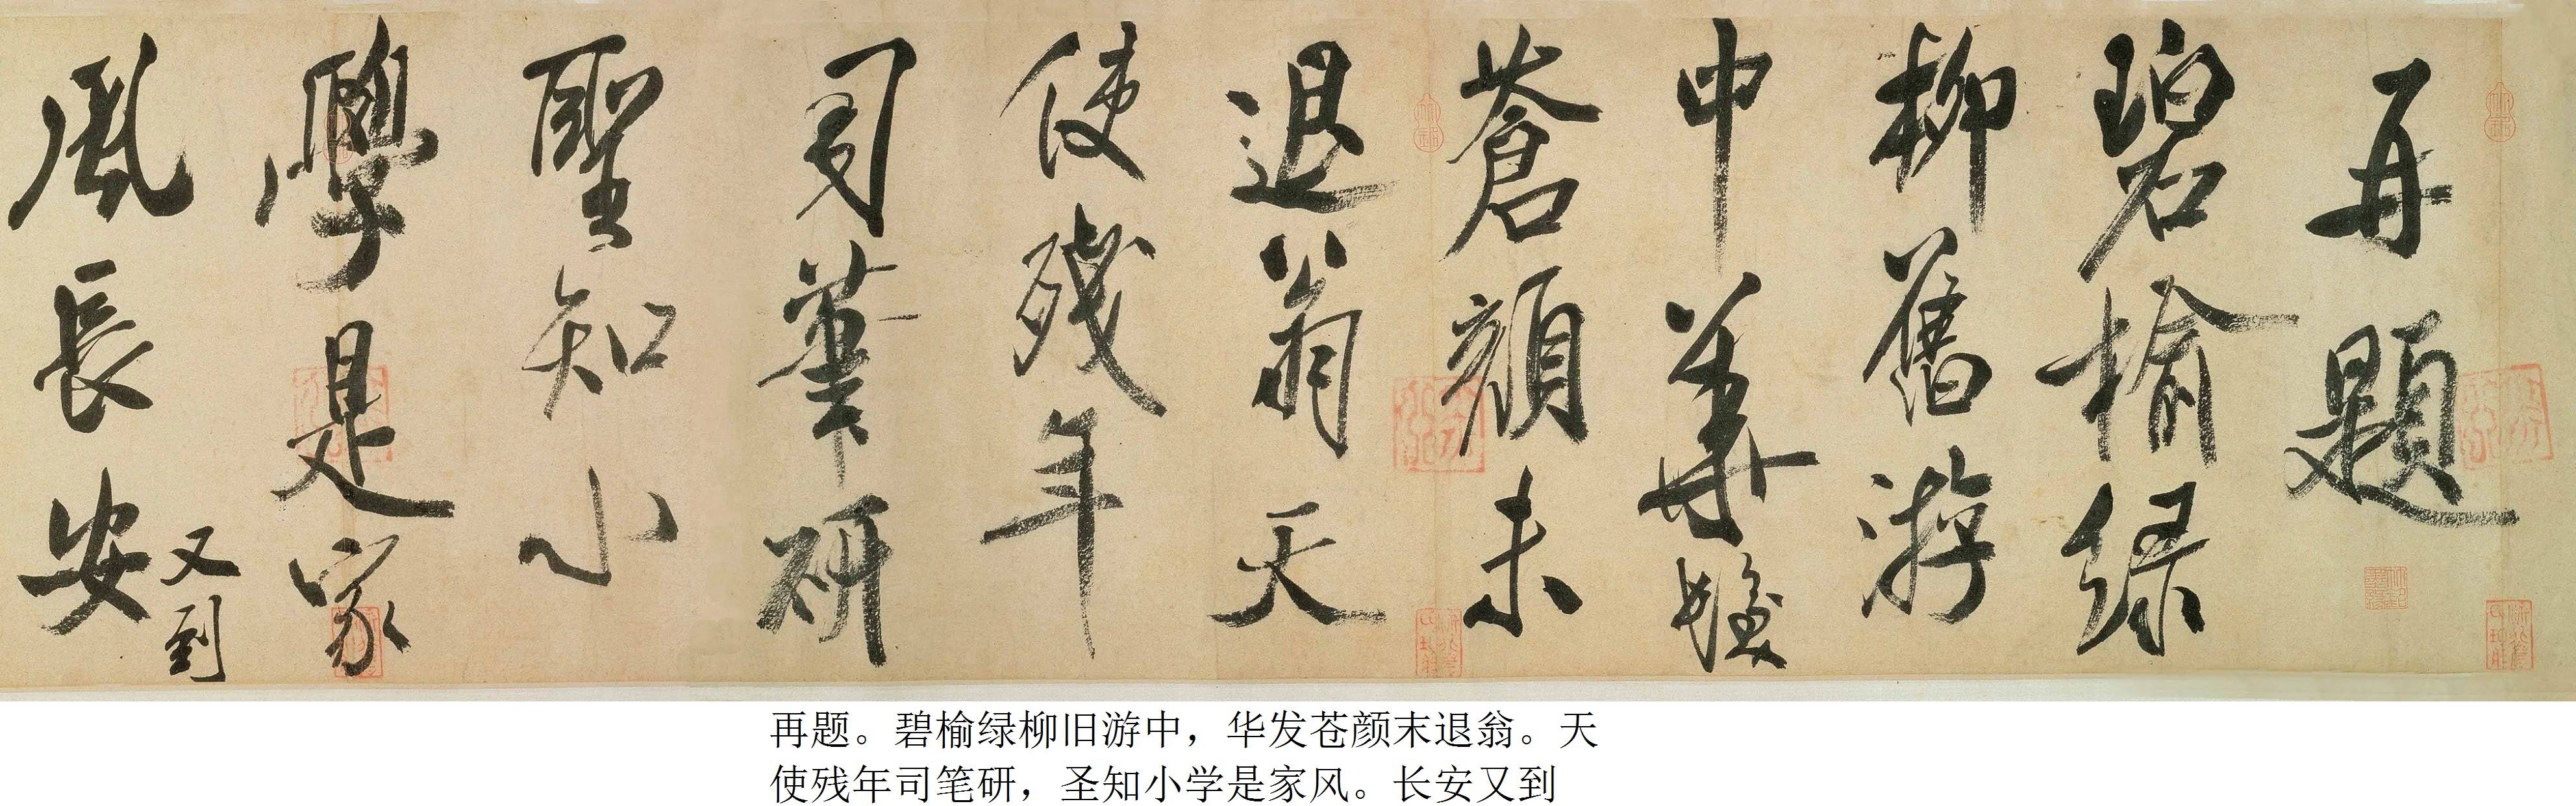 再題
碧榆緑
柳舊游
中華髮
蒼顏未
退翁天
使殘年
司筆研
聖知小
學是家
風長安
又到
再题。碧榆绿柳旧游中，华发苍颜末退翁。天
使残年司笔研，圣知小学是家风。长安又到